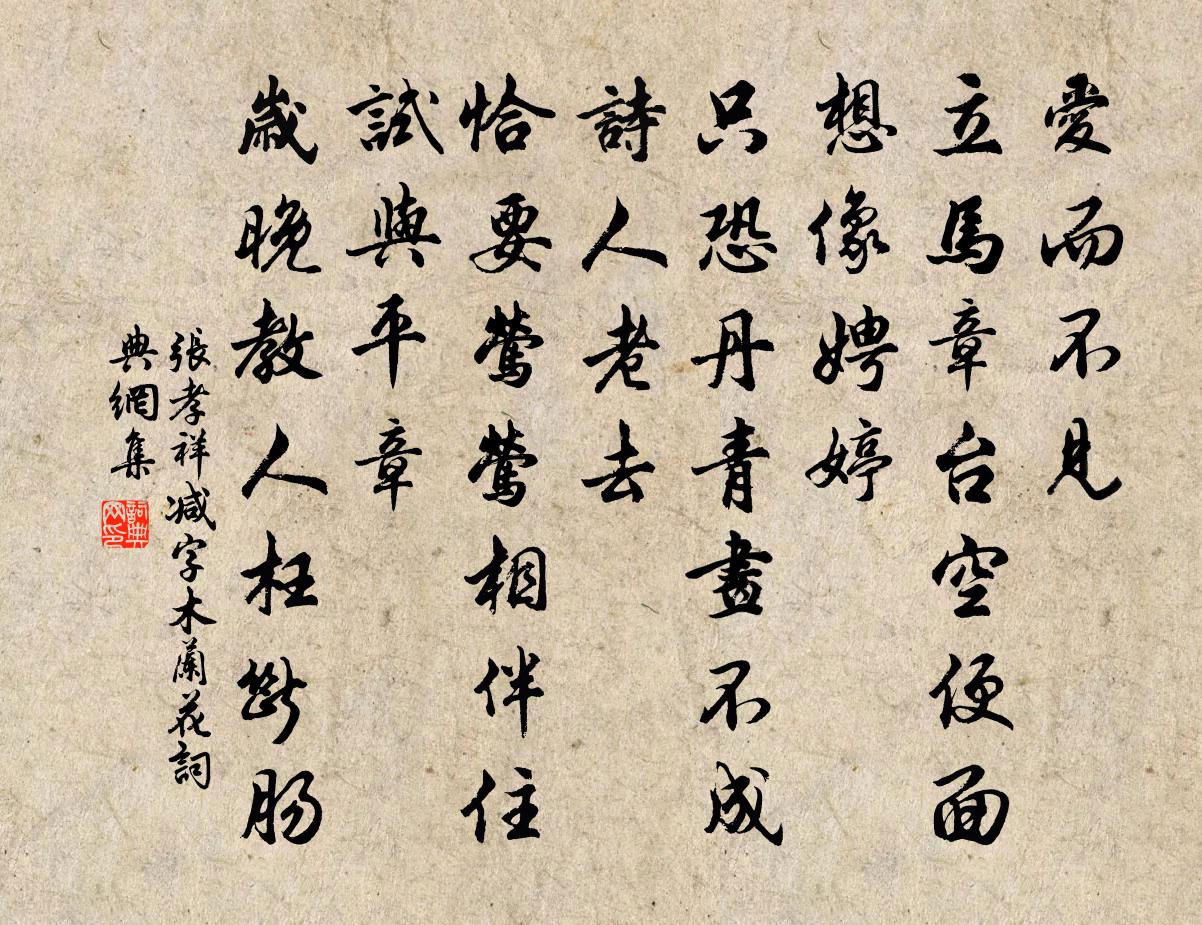 愛而不見
立馬章台空便面
想像娉婷
只恐丹青畫不成
詩人老去
恰要鶯鶯相伴住
試與平章
歲晚教人枉斷腸
張孝祥減字木蘭花詞
典網集
詞典網印